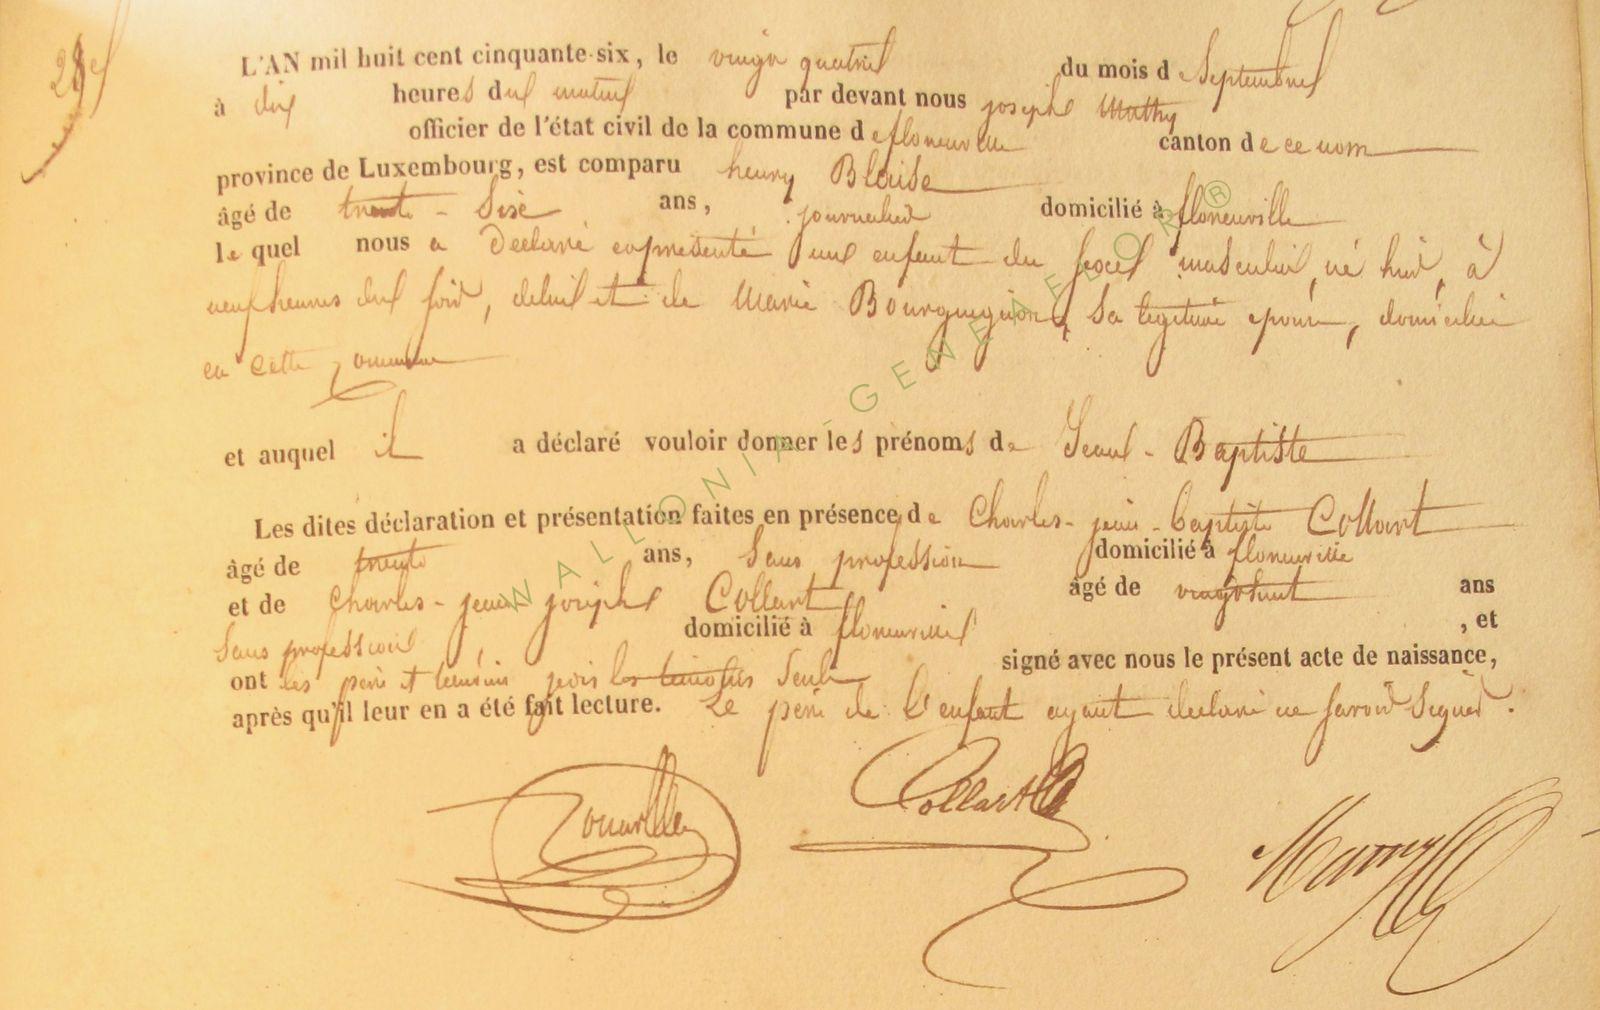 L'AN mil huit cent cinquante-six, le vingt quatre du mois d Septembre
à dix heures du matin par devant nous joseph Mathy
officier de l'état civil de la commune de florenville canton de ce nom
province de Luxembourg, est comparu henry Blaise
âgé de trente-Six ans, journalier domicilié à florenville
le quel nous a Déclaré et présenté un enfant du sexe masculin, né hier, à
neuf heures du soir, de lui et de Marie Bourguignon, Sa légitime épouse, domiciliée
en cette commune
et auquel il a déclaré vouloir donner les prénoms de Jean-Baptiste
Les dites déclaration et présentation faites en présence de Charles-jean-baptiste Collart
âgé de trente ans, Sans profession domicilié à florenville
et de Charles-jean joseph Collart âgé de vingt huit ans
Sans profession domicilié à florenville, et
ont les père et témoins les témoins Seuls signé avec nous le présent acte de naissance,
après qu'il leur en a été fait lecture. Le père de l'enfant ayant déclaré ne savoir Signer.
Collart
WALLONIA-GENEAFLOR®